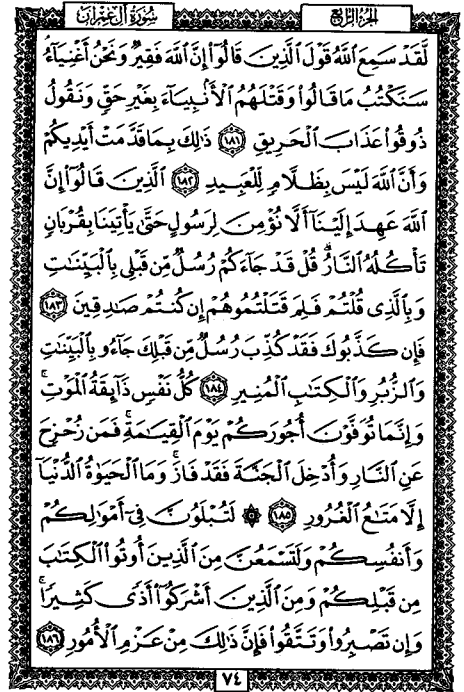 الجزء الرابع
سورة آل عمران
لَّقَدْ سَمِعَ اللَّهُ قَوْلَ الَّذِينَ قَالُوٓا۟ إِنَّ اللَّهَ فَقِيرٌ وَنَحْنُ أَغْنِيَآءُ
سَنَكْتُبُ مَا قَالُوا۟ وَقَتْلَهُمُ الْأَنۢبِيَآءَ بِغَيْرِ حَقٍّ وَنَقُولُ
ذُوقُوا۟ عَذَابَ الْحَرِيقِ ١٨١ ذَٰلِكَ بِمَا قَدَّمَتْ أَيْدِيكُمْ
وَأَنَّ اللَّهَ لَيْسَ بِظَلَّامٍ لِّلْعَبِيدِ ١٨٢ الَّذِينَ قَالُوٓا۟ إِنَّ
اللَّهَ عَهِدَ إِلَيْنَآ أَلَّا نُؤْمِنَ لِرَسُولٍ حَتَّىٰ يَأْتِيَنَا بِقُرْبَانٍ
تَأْكُلُهُ النَّارُ ۗ قُلْ قَدْ جَآءَكُمْ رُسُلٌ مِّن قَبْلِى بِالْبَيِّنَٰتِ
وَبِالَّذِى قُلْتُمْ فَلِمَ قَتَلْتُمُوهُمْ إِن كُنتُمْ صَٰدِقِينَ ١٨٣
فَإِن كَذَّبُوكَ فَقَدْ كُذِّبَ رُسُلٌ مِّن قَبْلِكَ جَآءُو بِالْبَيِّنَٰتِ
وَالزُّبُرِ وَالْكِتَٰبِ الْمُنِيرِ ١٨٤ كُلُّ نَفْسٍ ذَآئِقَةُ الْمَوْتِ ۗ
وَإِنَّمَا تُوَفَّوْنَ أُجُورَكُمْ يَوْمَ الْقِيَٰمَةِ ۖ فَمَن زُحْزِحَ
عَنِ النَّارِ وَأُدْخِلَ الْجَنَّةَ فَقَدْ فَازَ ۗ وَمَا الْحَيَوٰةُ الدُّنْيَآ
إِلَّا مَتَٰعُ الْغُرُورِ ١٨٥ ۞ لَتُبْلَوُنَّ فِىٓ أَمْوَٰلِكُمْ
وَأَنفُسِكُمْ وَلَتَسْمَعُنَّ مِنَ الَّذِينَ أُوتُوا۟ الْكِتَٰبَ
مِن قَبْلِكُمْ وَمِنَ الَّذِينَ أَشْرَكُوٓا۟ أَذًى كَثِيرًا ۚ
وَإِن تَصْبِرُوا۟ وَتَتَّقُوا۟ فَإِنَّ ذَٰلِكَ مِنْ عَزْمِ الْأُمُورِ ١٨٦
٧٤